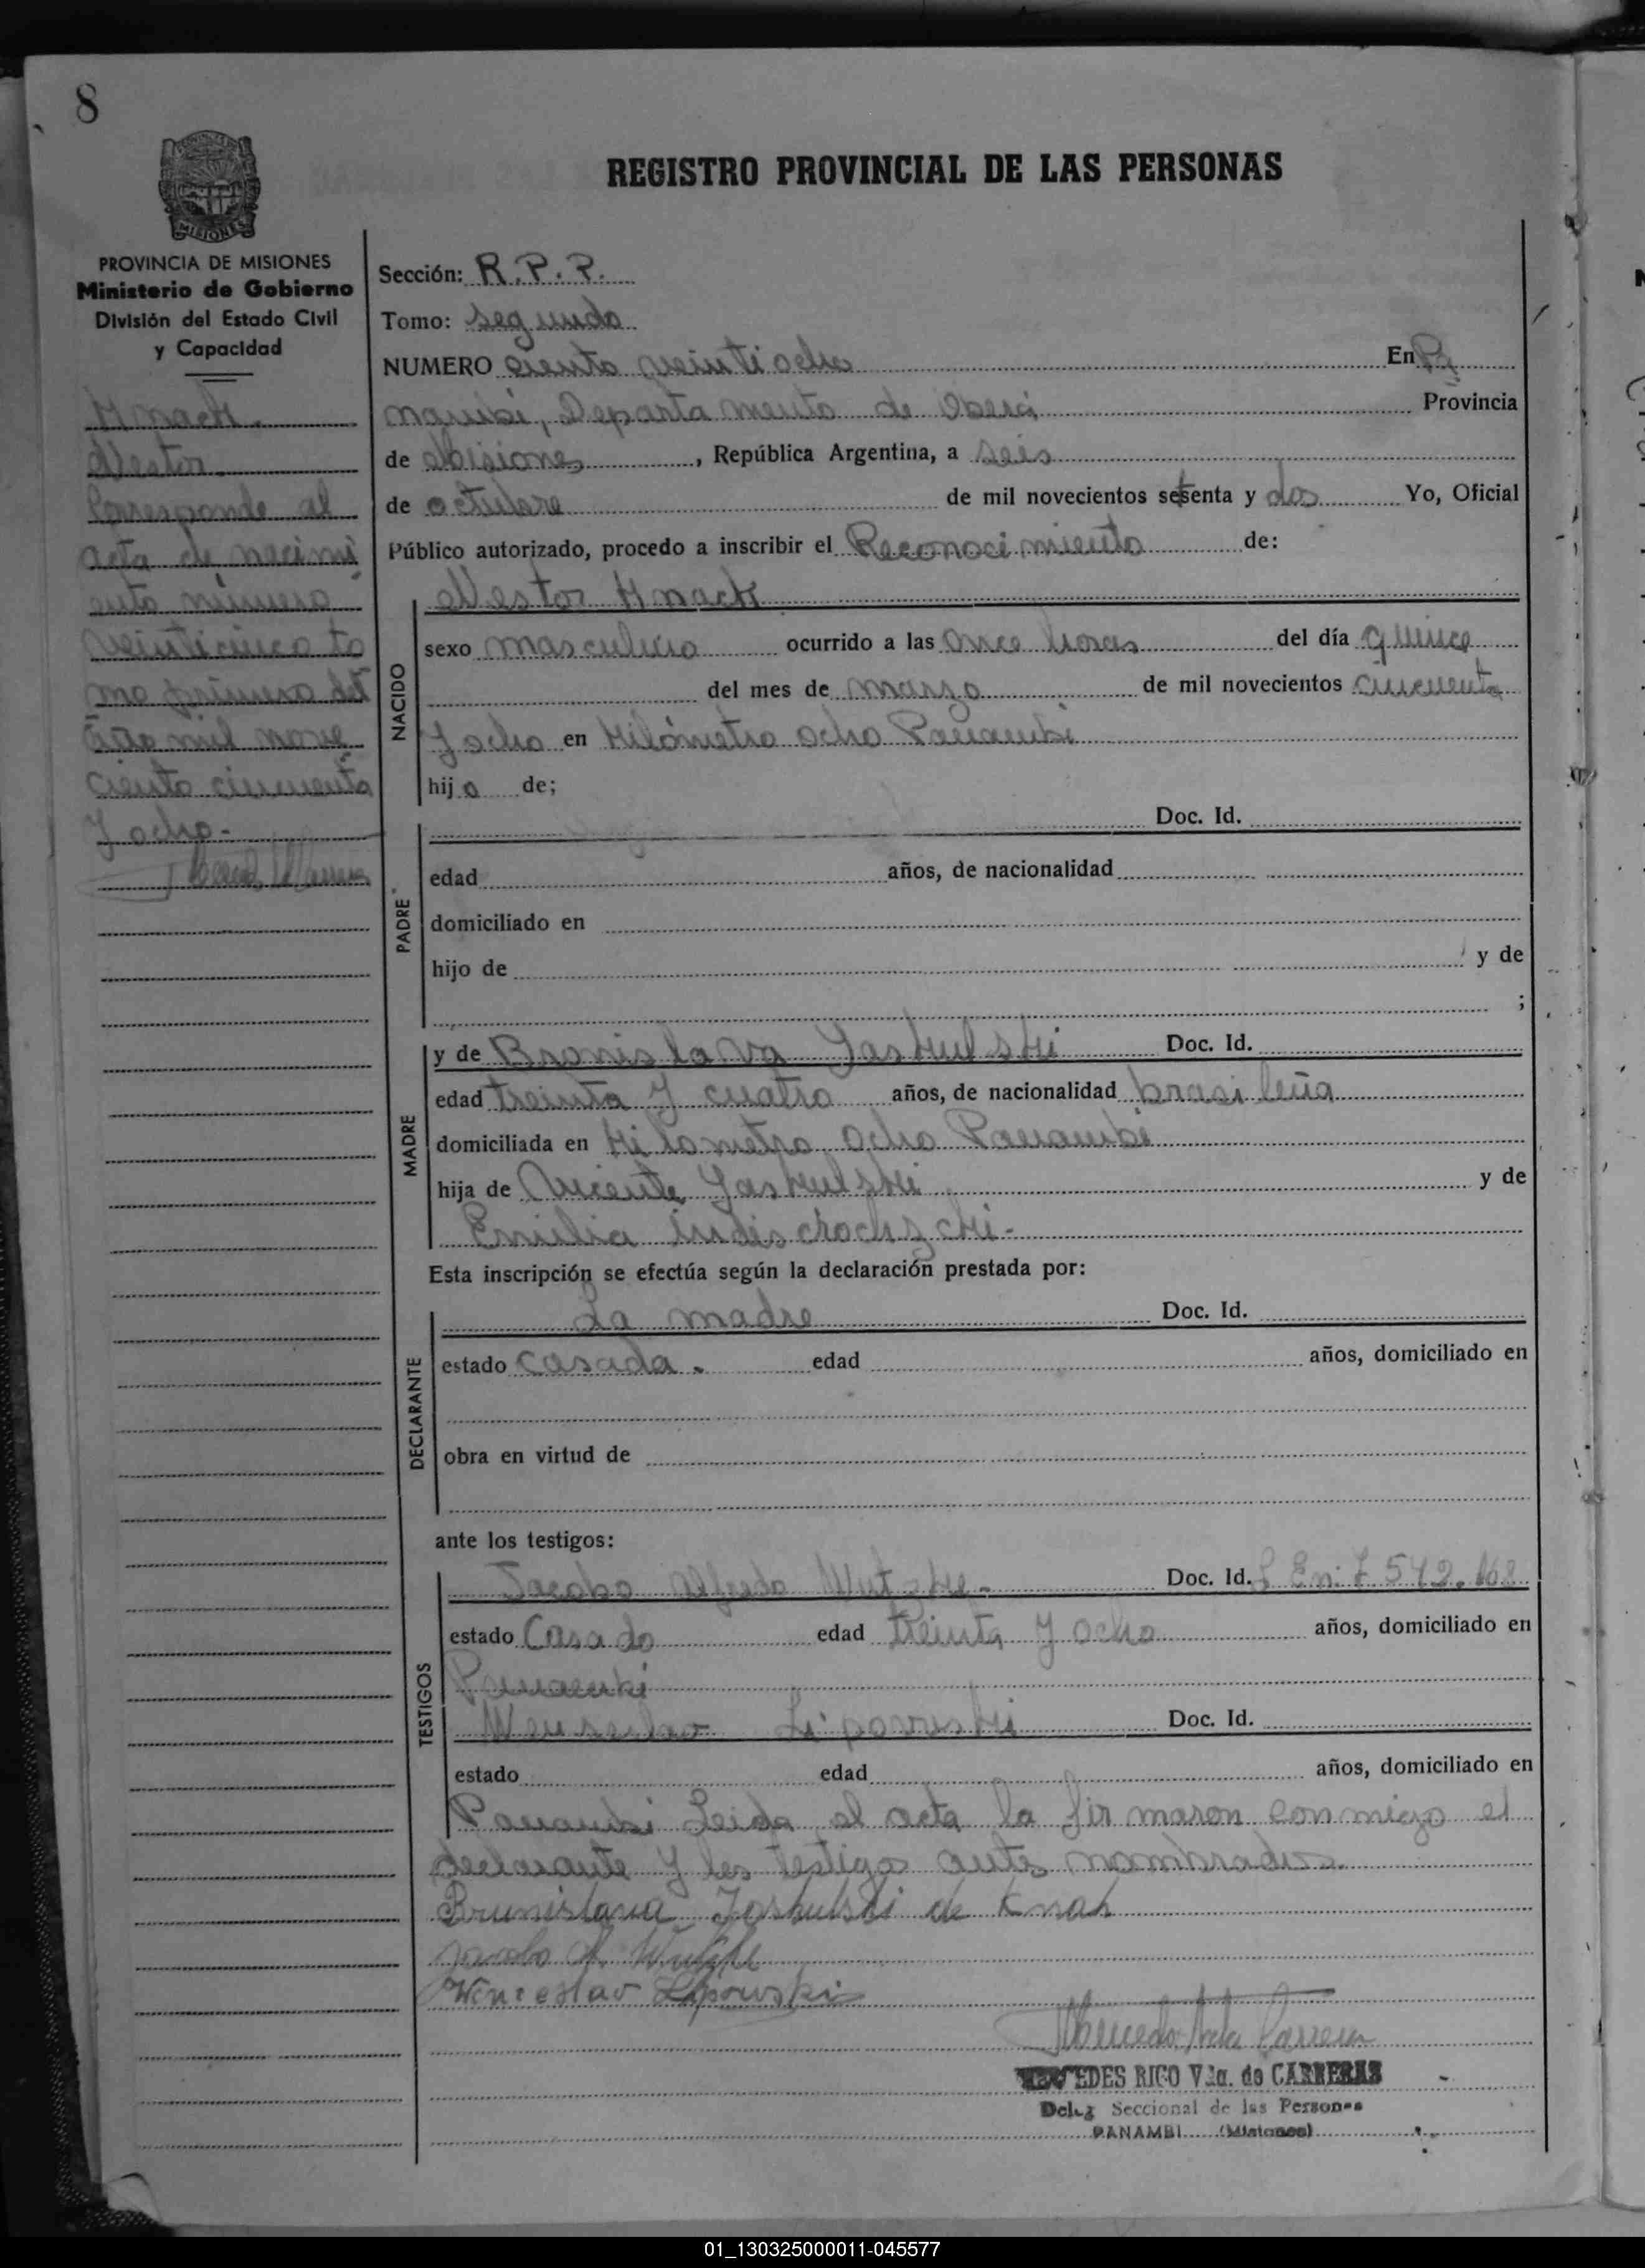 8
REGISTRO PROVINCIAL DE LAS PERSONAS
MISIONES
PROVINCIA DE MISIONES
Ministerio de Gobierno
División del Estado Civil
y Capacidad
Knack
Nestor
Corresponde al
acta de nacimi
ento número
veinticinco to
mo primero del
año mil nove
ciento cincuenta
y ocho.-
Sección: R.P.P.
Tomo: segundo
NUMERO ciento veinti ocho En Pa
nambi, Departamento de Oberá Provincia
de Misiones, República Argentina, a seis
de octubre de mil novecientos setenta y dos Yo, Oficial
Público autorizado, procedo a inscribir el Reconocimiento de:
NACIDO
Nestor Knack
sexo masculino ocurrido a las once horas del día quince
del mes de marzo de mil novecientos cincuenta
y ocho en Kilómetro ocho Panambi
hijo de;
PADRE
Doc. Id.
edad años, de nacionalidad
domiciliado en
hijo de y de
;
MADRE
y de Bronislava Jaskulski Doc. Id.
edad treinta y cuatro años, de nacionalidad brasileña
domiciliada en Kilometro ocho Panambi
hija de Vicente Jaskulski y de
Emilia
Esta inscripción se efectúa según la declaración prestada por:
DECLARANTE
La madre Doc. Id.
estado casada. edad años, domiciliado en
obra en virtud de
ante los testigos:
TESTIGOS
Jacobo Alfredo Doc. Id.
estado Casado edad treinta y ocho años, domiciliado en
Panambi
Wenseslao Lipowski Doc. Id.
estado edad años, domiciliado en
Panambi Leida el acta la firmaron conmigo el
declarante y los testigo antes nombrados.
Brunislava Jaskulski de Knak
Jacobo A.
Wenceslao Lipowski
MERCEDES RICO Vda. de CARRERAS
Deleg Seccional de las Personas
PANAMBI (Misiones)
01_130325000011-045577